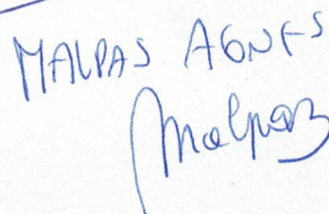 MALPAS AGNES
Malpas